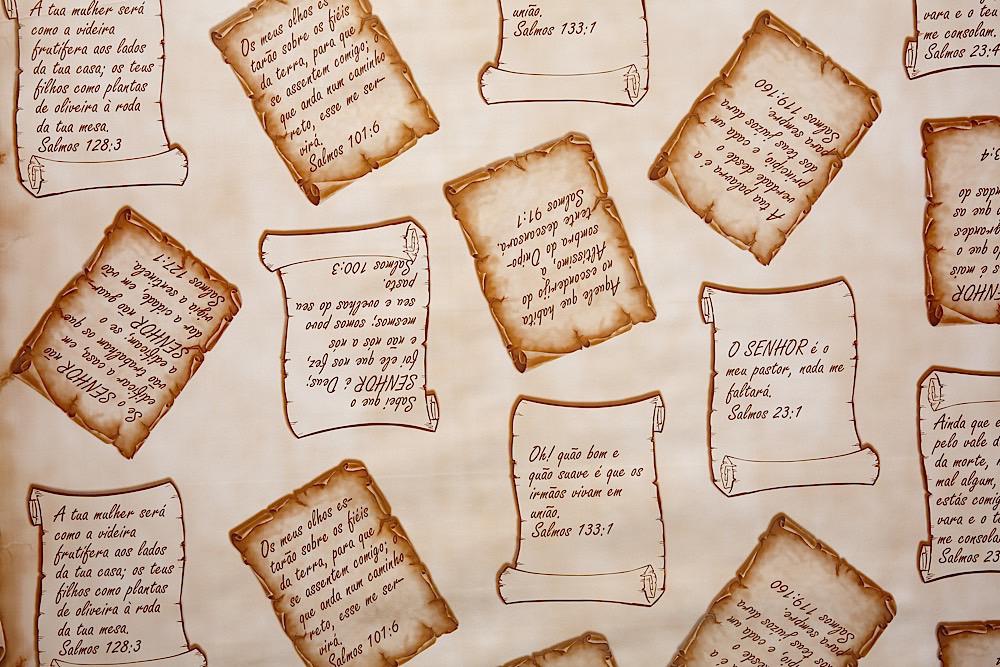 A tua mulher será
como a videira
frutífera aos lados
da tua casa; os teus
filhos como plantas
de oliveira à roda
da tua mesa.
Salmos 128:3
Os meus olhos es-
tarão sobre os fiéis
da terra, para que
se assentem comigo; o
que anda num caminho
reto, esse me ser-
virá.
Salmos 101:6
união.
Salmos 133:1
A tua palavra é a
verdade desde o
princípio, e cada um
dos teus juízos dura
para sempre.
Salmos 119:160
vara e o
me consolam.
Salmos 23:4
Se o SENHOR não
edificar a casa, em
vão trabalham os que
a edificam; se o
SENHOR não guar-
dar a cidade, em vão
vigia a sentinela.
Salmos 127:1
Sabei que o
SENHOR é Deus;
foi ele que nos fez,
e não nós a nós
mesmos; somos povo
seu e ovelhas do seu
pasto.
Salmos 100:3
Aquele que habita
no esconderijo do
Altíssimo, à
sombra do Onipo-
tente descansará.
Salmos 91:1
O SENHOR é o
meu pastor, nada me
faltará.
Salmos 23:1
NHOR
é mais
grandes
que as
ndas do
3:4
A tua mulher será
como a videira
frutífera aos lados
da tua casa; os teus
filhos como plantas
de oliveira à roda
da tua mesa.
Salmos 128:3
Os meus olhos es-
tarão sobre os fiéis
da terra, para que
se assentem comigo; o
que anda num caminho
reto, esse me ser-
virá.
Salmos 101:6
Oh! quão bom e
quão suave é que os
irmãos vivam em
união.
Salmos 133:1
desde o
pio, e cada um
dos teus juízos dura
para sempre.
Salmos 119:160
Ainda que e
pelo vale d
da morte, n
mal algum,
estás comig
vara e o t
me consola
Salmos 23